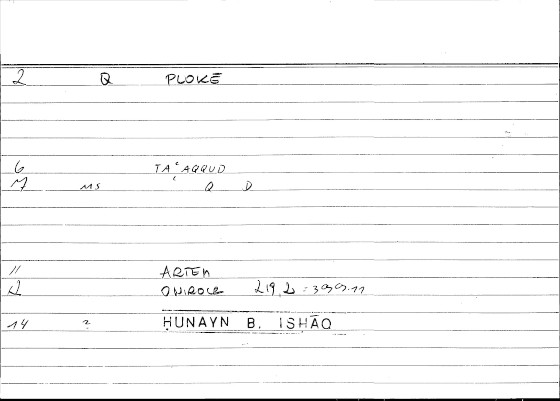 2 Q PLOKĒ
6 TAʿAQQUD
M MS Q D
11 ARTEM
12 ONIROCR 219,2 : 399.11
14 ? ḤUNAYN B. ISḤĀQ